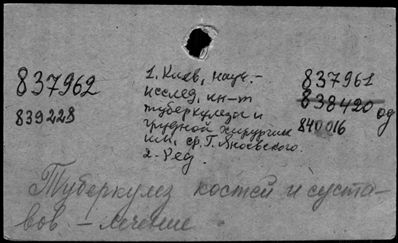 837962
839228
1. Киев, науч.-
исслед. ин-т
туберкулеза и
грудной хирургии
им. Ф. Г. Яновского.
2. Ред.
837961
838420 од
840016
Туберкулез костей и суста-
вов - лечение